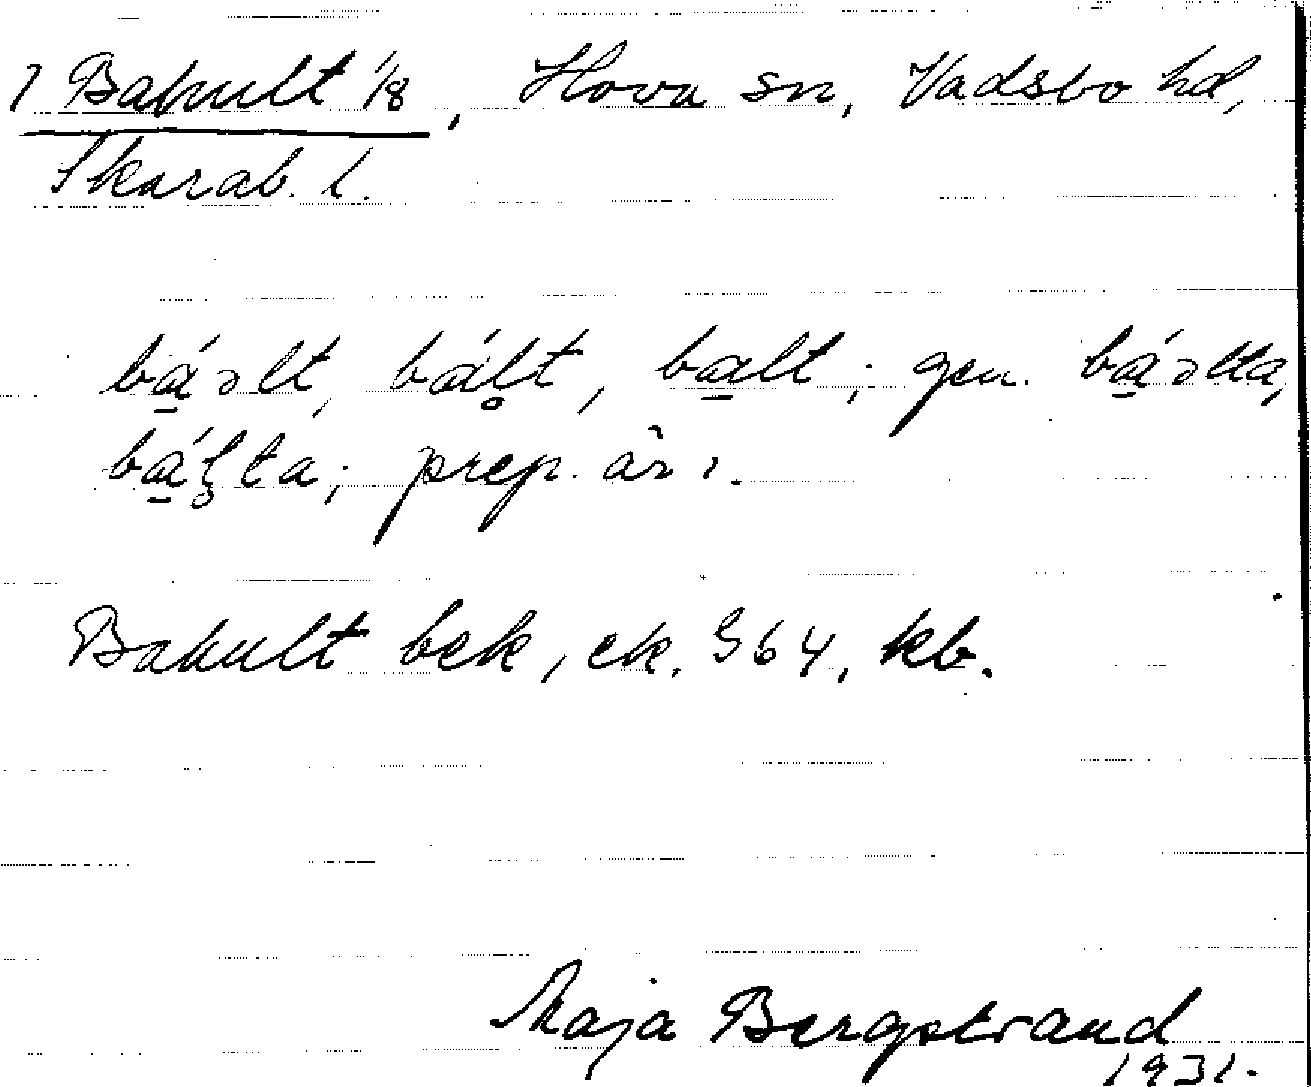 1 Bakult 1/8, Hova sn, Vadsbo hd,
Skarab. l.
bá̱əlt, bál̥t, ba̱lt; gen. bá̱əlta,
bá̱l̥ta; prep. är i.
Bakult bek, ek. 364, kb.
Maja Bergstrand
1931.